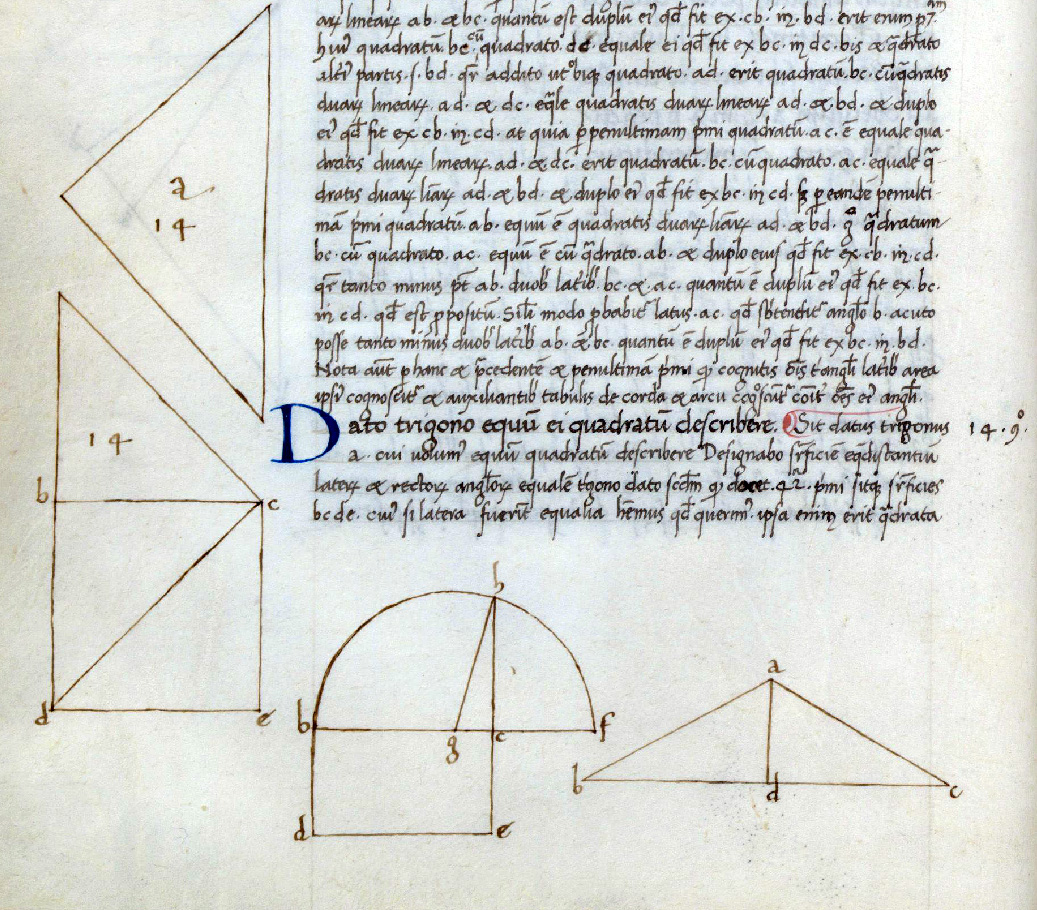 arꝝ linearꝝ ab. & bc. quantū est duplū eiꝰ qd̄ fit ex. cb. in. bd. erit enim p 7.am
huiꝰ quadratū. bc cū quadrato. dc. equale ei qd̄ fit ex bc. in dc. bis & q̄drato
altiꝰ partis .s. bd. qr̄ addito utrobiqꝫ quadrato. ad. erit quadratū. bc. cū q̄dratis
duarꝝ linearꝝ. ad. & dc. eq̄le quadratis duarꝝ linearꝝ ad. & bd. & duplo
eiꝰ qd̄ fit ex cb. in. cd. at quia ꝑ penultimam p̄mi quadratū. ac. ē equale qua-
dratis duarꝝ linearꝝ. ad. & dc. erit quadratū. bc. cū quadrato. ac. equale q̄-
dratis duarꝝ liāꝝ ad. & bd. & duplo eiꝰ qd̄ fit ex bc. in cd. sꝫ ꝑ eandē penulti-
mā p̄mi quadratū. ab. equū ē quadratis duarꝝ liāꝝ ad. & bd. gͦ q̄dratum
bc. cū quadrato. ac. equū ē cū q̄drato. ab. & duplo eius qd̄ fit ex. cb. in. cd.
qr̄ tanto minus pt̄ ab. duobꝰ laťibꝰ. bc. &. ac. quantū ē duplū eiꝰ qd̄ fit ex. bc.
in cd. qd̄ est ꝓpositū. Sil̄i modo ꝓbabit̉ latus. ac. qd̄ sbtendit̉ anglo b. acuto
posse tanto minus duobꝰ laťibꝰ ab. & bc. quantū ē duplū eiꝰ qd̄ fit ex bc. in. bd.
Nota aūt ꝑ hanc & p̄cedentē & penultimā p̄mi qꝫ cognitis oīs t̓angli laťibꝰ area
ipsiꝰ cognoscit̉ & auxiliantibꝰ tabulis de corda & arcu cognoscūt̉ oēs eiꝰ angli.
Dato trigono equū ei quadratū describere. Sit datus trigonus 14. 9ͦ.
a. cui volumꝰ equū quadratū describere Designabo sr̄ficiē eq̄distantiū
laterꝝ & rectorꝝ anglorꝝ equalē t̓gono dato scd̄m qꝫ docet. 42. p̄mi sitqꝫ sr̄ficies
bcde. cuiꝰ si latera fuerīt equalia hēmus qd̄ querimꝰ. ipsa enim erit q̄drata
a
14
14
b
c
d
e
h
b
g
c
f
d
e
a
b
d
c